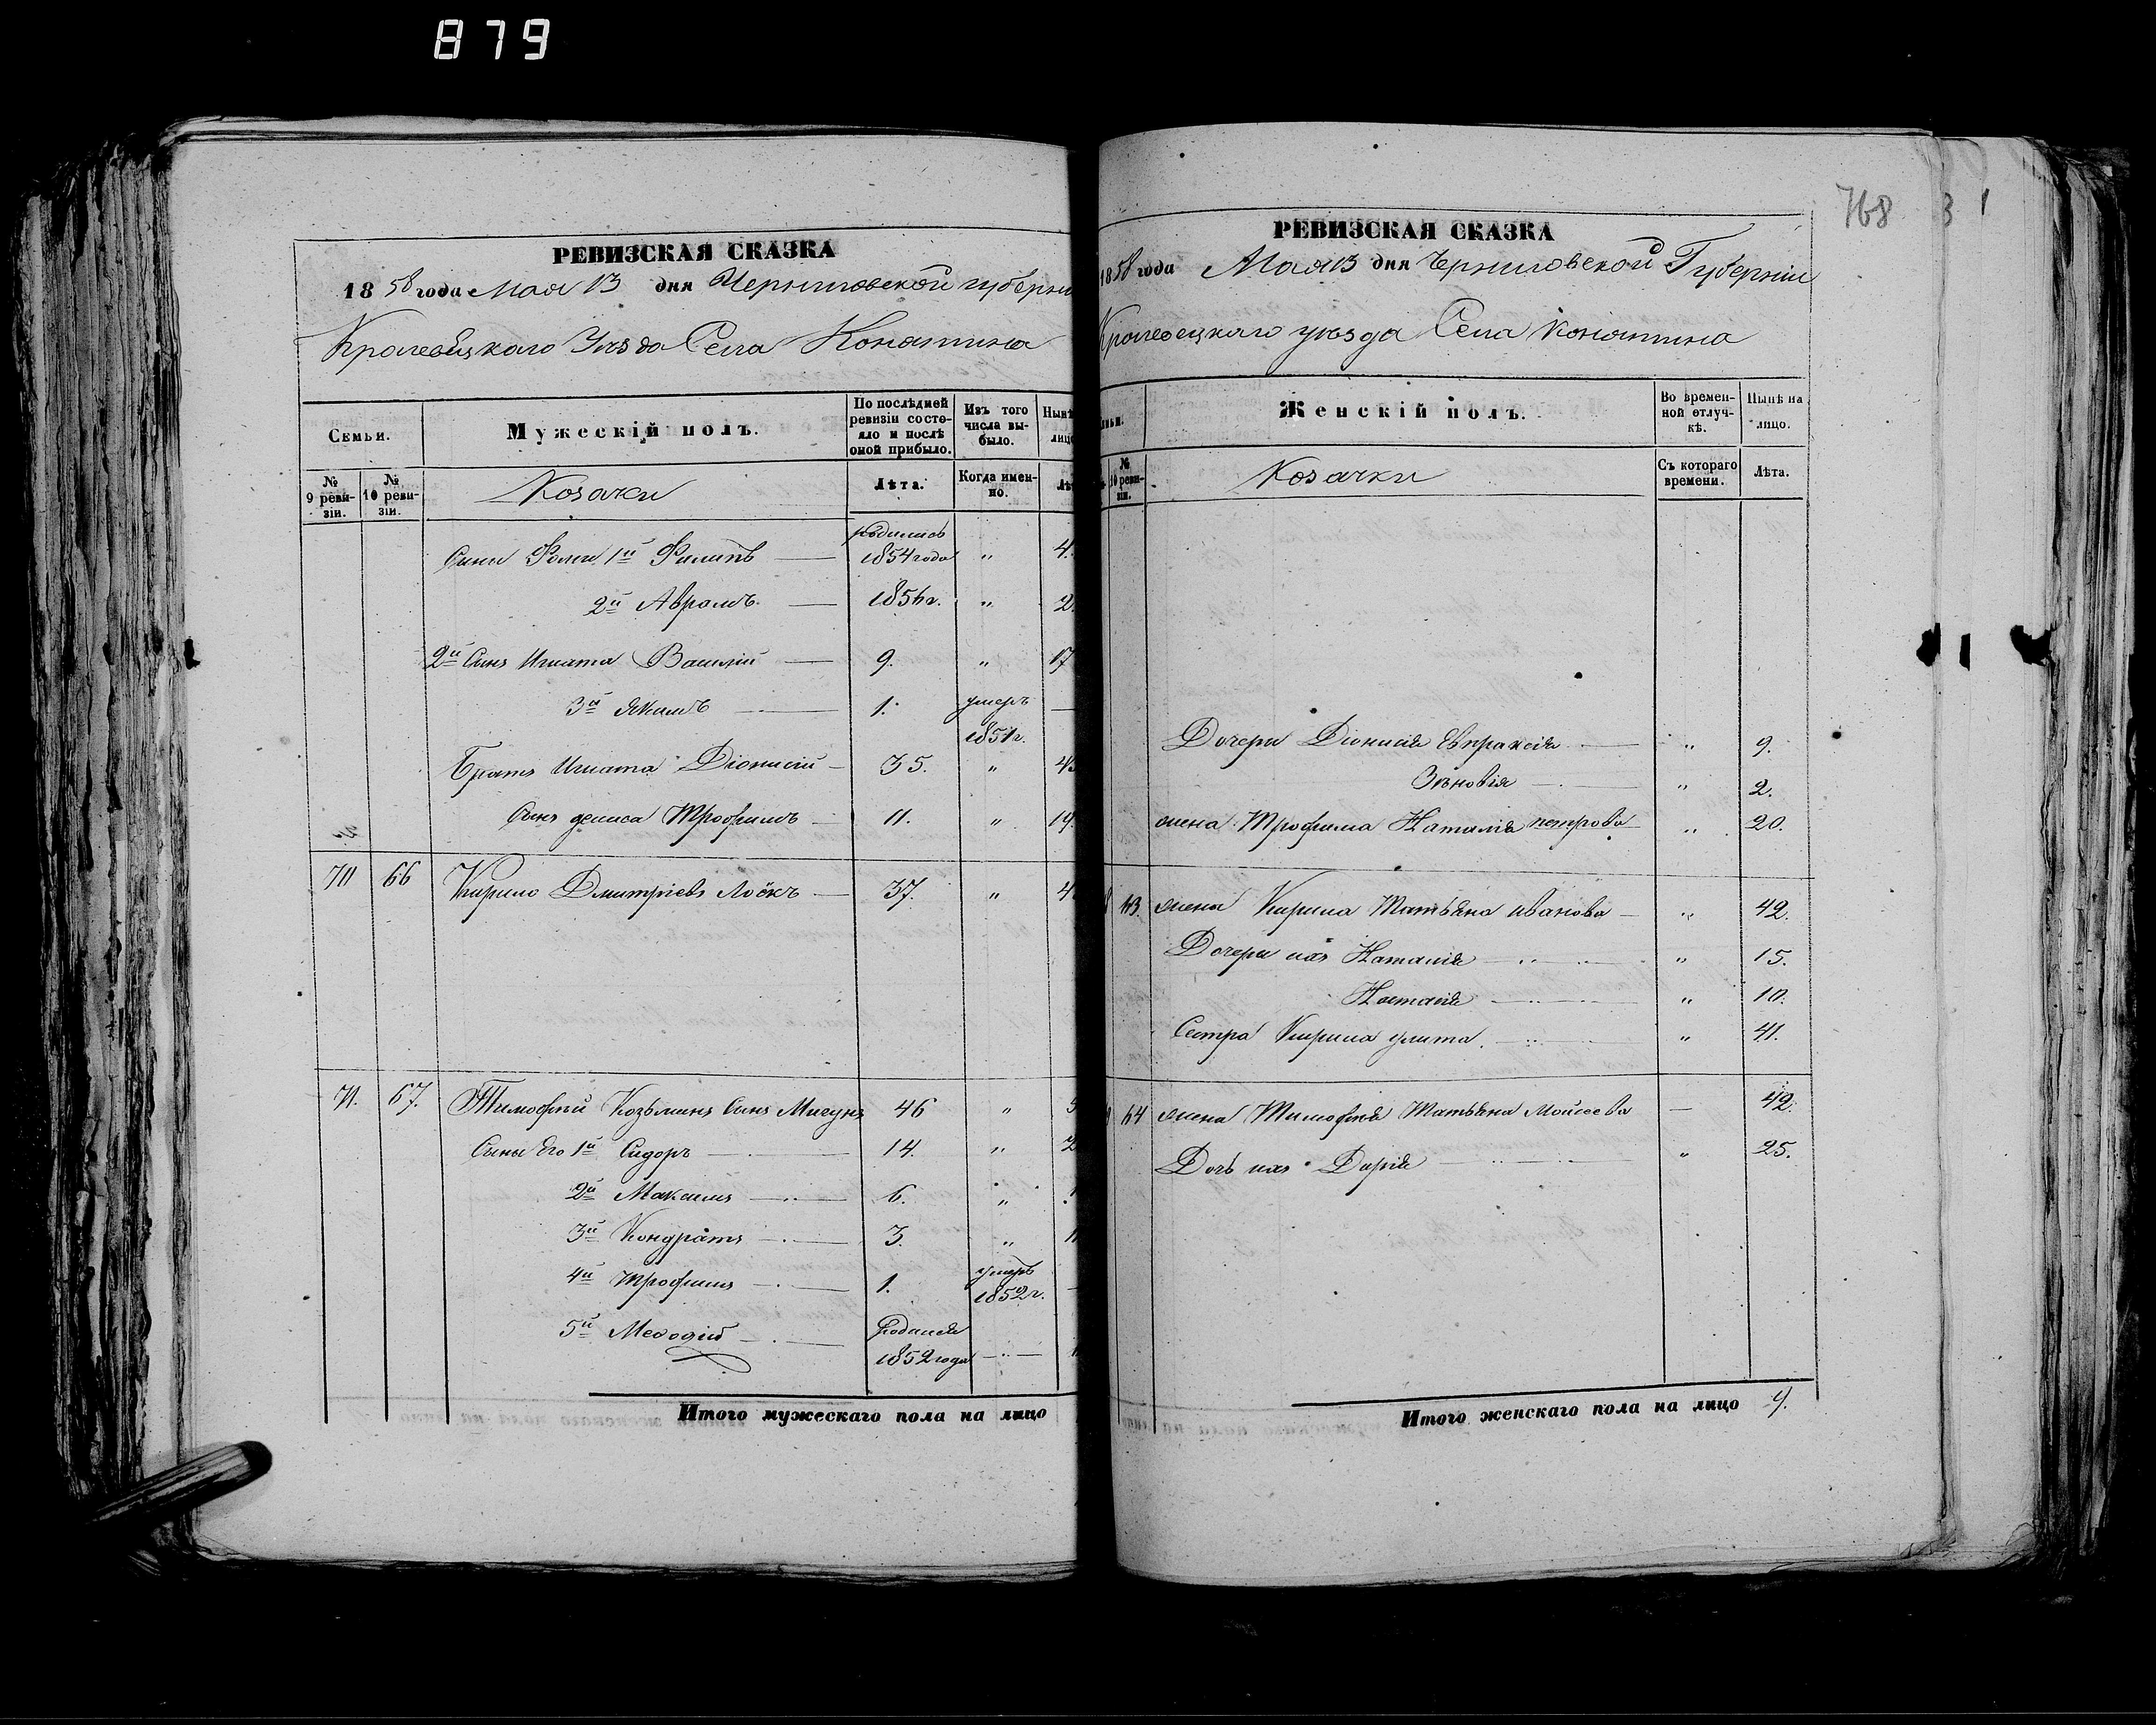 879
РЕВИЗСКАЯ СКАЗКА
1858 года Мая 13 дня Черниговской губерни
Кролевецкаго Уѣзда Села Конятина
Семьи. Мужескій полъ. По послѣдней ревизіи состояло и послѣ оной прибыло. Изъ того числа выбыло. Нынѣ лицо
№ 9 ревизіи. № 10 ревизіи. Козачки Лѣта. Когда именно. Лѣ
Сыны Фомы 1й Филипъ родились 1854 года „ 4.
2й Аврамъ. 1856 г. „ 2.
2й Сынъ Игната Василий 9. „ 17
3й Якимъ 1. умеръ 1851 г. —
Братъ Игната Діонисий 35. „ 43
Сынъ дениса Трофимъ 11. „ 19.
70 66 Кирило Дмитріевъ 37. „ 4
71. 67. Тимофѣй Козьминъ Сынъ Мисунъ 46 „ 5
Сыны Его 1й Сидоръ 14. „ 2
2й Максимъ 6. „ 1
3й Кондратъ 3. „ 11
4й Трофимъ 1. умеръ 1852 г. —
5й Меѳодій родился 1852 года — 
Итого мужескаго пола на лицо
768 3 1
РЕВИЗСКАЯ СКАЗКА
1858 года Мая 13 дня Черниговской Губерніи
Кролевецкаго уѣзда Села Конятина
мьи. Женскій полъ. Во временной отлучкѣ. Нынѣ на лицо.
№ 10 ревизіи. Козачки Съ котораго времени. Лѣта.
Дочери Діонисія Евпраксія „ 9.
Зѣновія „ 2.
жена Трофима Наталія петрова „ 20.
63. жена Кирила Татьяна иванова „ 42.
Дочери ихъ Наталія „ 15.
Настасія „ 10.
Сестра Кирила улита. „ 41.
64 жена Тимофѣя Татьяна Мойсеева — 42.
Дочь ихъ Дарія „ 25.
Итого женскаго пола на лицо 9.